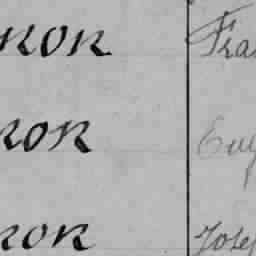 non Fra
non Eug
non Josep